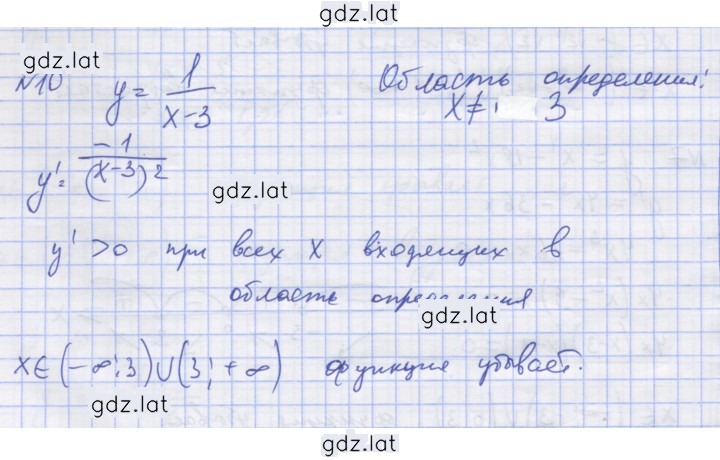 gdz.lat
gdz.lat
№10 y = 1/(x-3) Область определения:
x ≠ 3
y' = -1/(x-3)²
gdz.lat
y' > 0 при всех x входящих в
область определения
gdz.lat
x∈(-∞;3)∪(3;+∞) функция убывает.
gdz.lat
gdz.lat